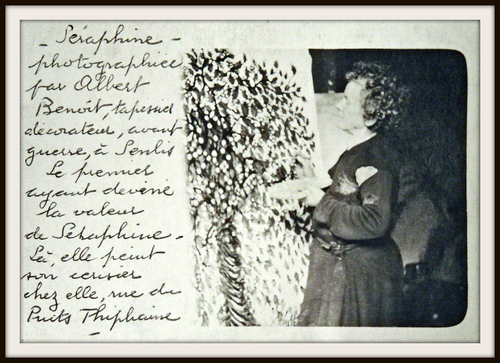 - Séraphine -
photographiée
par Albert
Benoit, tapissier
décorateur, avant
guerre, à Senlis
Le premier
ayant deviné
la valeur
de Séraphine -
Là, elle peint
son cerisier
chez elle, rue du
Puits Thiphaine
-